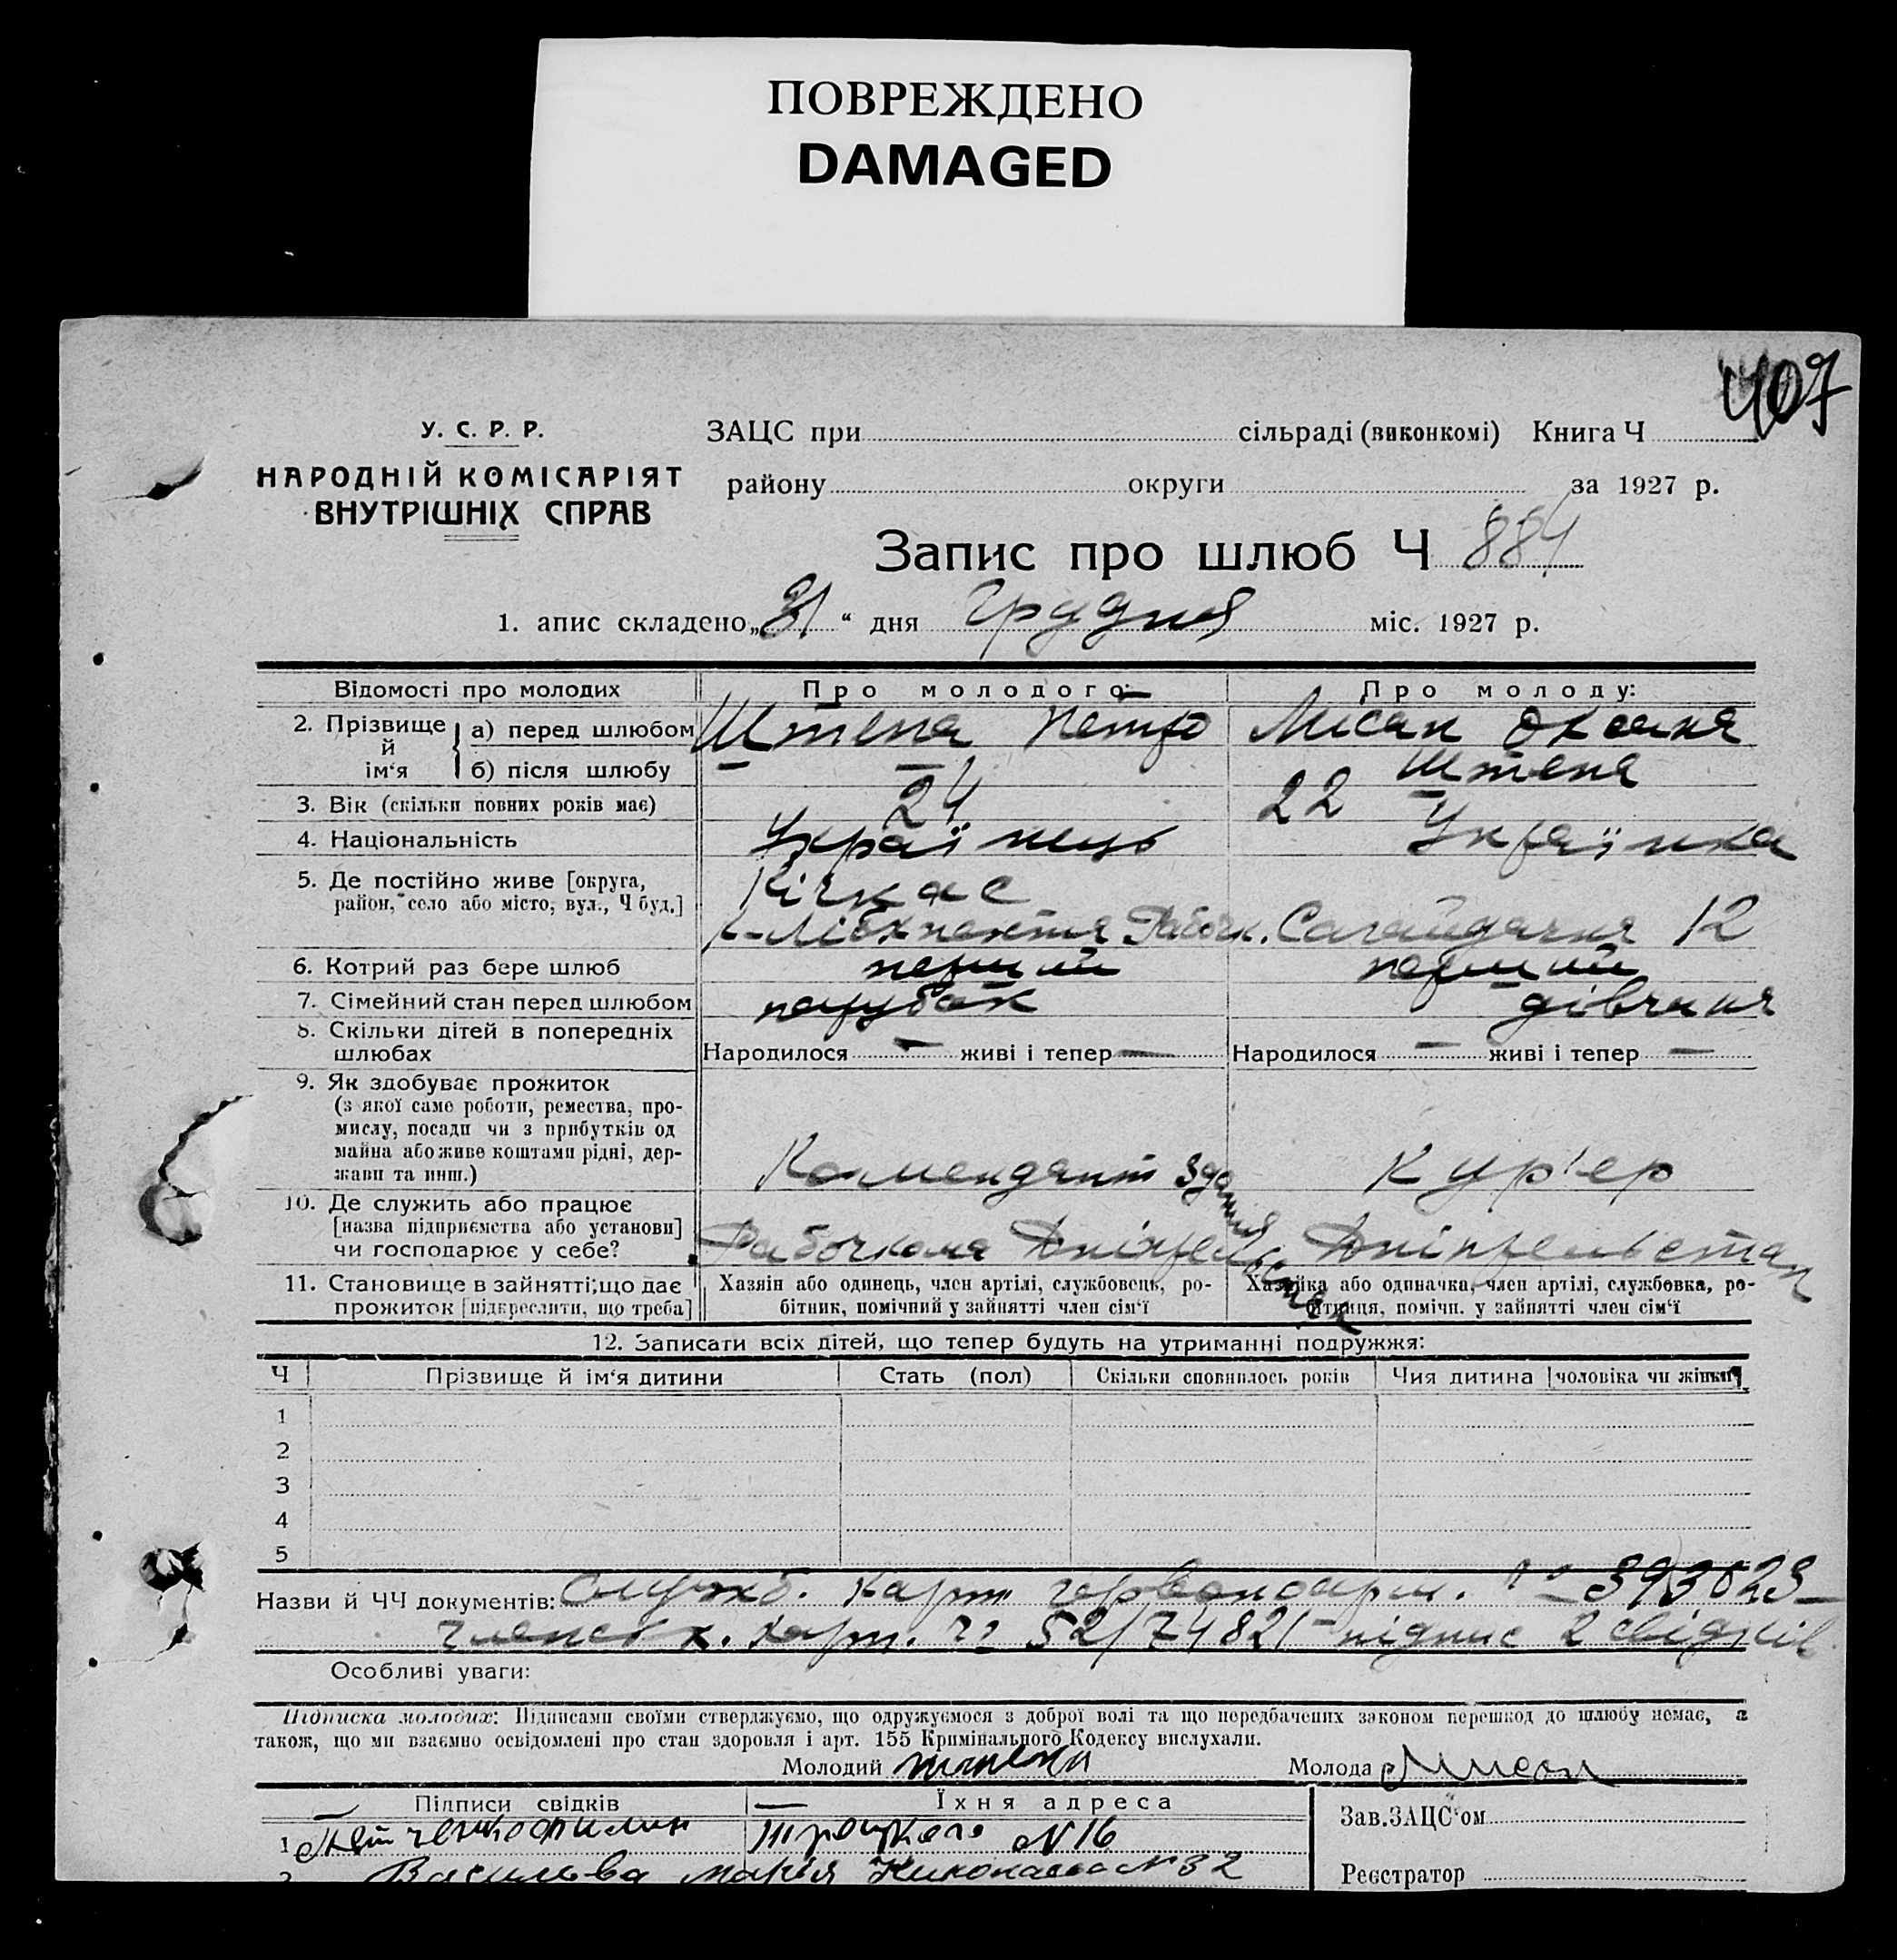 ПОВРЕЖДЕНО
DAMAGED
407
У. С. Р. Р.
НАРОДНІЙ КОМІСАРІЯТ
ВНУТРІШНІХ СПРАВ
ЗАЦС при сільраді (виконкомі) Книга Ч
району округи за 1927 р.
Запис про шлюб Ч 884
1. апис складено „31“ дня Грудня міс. 1927 р.
Відомості про молодих Про молодого: Про молоду:
2. Прізвище й ім‘я а) перед шлюбом Штепа Петро Лисак Оксана
б) після шлюбу — — Штепа
3. Вік (скільки повних років має) 24 22
4. Національність Українець Українка
5. Де постійно живе [округа, район, село або місто, вул., Ч буд.] Кічкас
к-Лібкнехта Рабочк. Сагайдачна 12
6. Котрий раз бере шлюб перший перший
7. Сімейний стан перед шлюбом парубок дівчина
8. Скільки дітей в попередніх шлюбах Народилося — живі і тепер — Народилося — живі і тепер —
9. Як здобуває прожиток
(з якої саме роботи, ремества, про-
мислу, посади чи з прибутків од
майна або живе коштами рідні, дер-
жави та инш.) Комендант здания Кур'ер
10. Де служить або працює
[назва підприємства або установи]
чи господарює у себе? Рабочкома Дніпрельстан Дніпрельстан
11. Становище в зайнятті, що дає
прожиток [підкреслити, що треба]
Хазяїн або одинець, член артілі, службовець, ро-
бітник, помічний у зайнятті член сім‘ї
Хазяйка або одиначка, член артілі, службовка, ро-
бітниця, помічн. у зайнятті член сім‘ї
12. Записати всіх дітей, що тепер будуть на утриманні подружжя:
Ч Прізвище й ім‘я дитини Стать (пол) Скільки сповнилось років Чия дитина [чоловіка чи жінки]
1
2
3
4
5
Назви й ЧЧ документів: Служб. карт червоноарм. № 393023 —
членськ. карт. № 52/74821 — підпис 2 свідків
Особливі уваги:
Підписка молодих: Підписами своїми стверджуємо, що одружуємося з доброї волі та що передбачених законом перешкод до шлюбу немає, а
також, що ми взаємно освідомлені про стан здоровля і арт. 155 Кримінального Кодексу вислухали.
Молодий Штепа Молода Лисак
Підписи свідків Їхня адреса Зав.ЗАЦС‘ом
1 Троцкого N 16
2 Васильва Марія N 32 Реєстратор